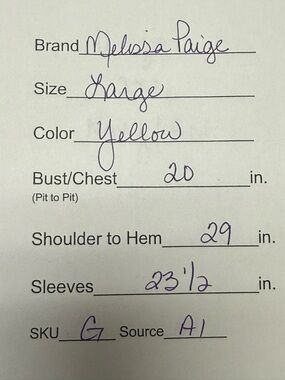 Brand Melissa Paige
Size Large
Color Yellow
Bust/Chest 20 in.
(Pit to Pit)
Shoulder to Hem 29 in.
Sleeves 23 1/2 in.
SKU G Source A1